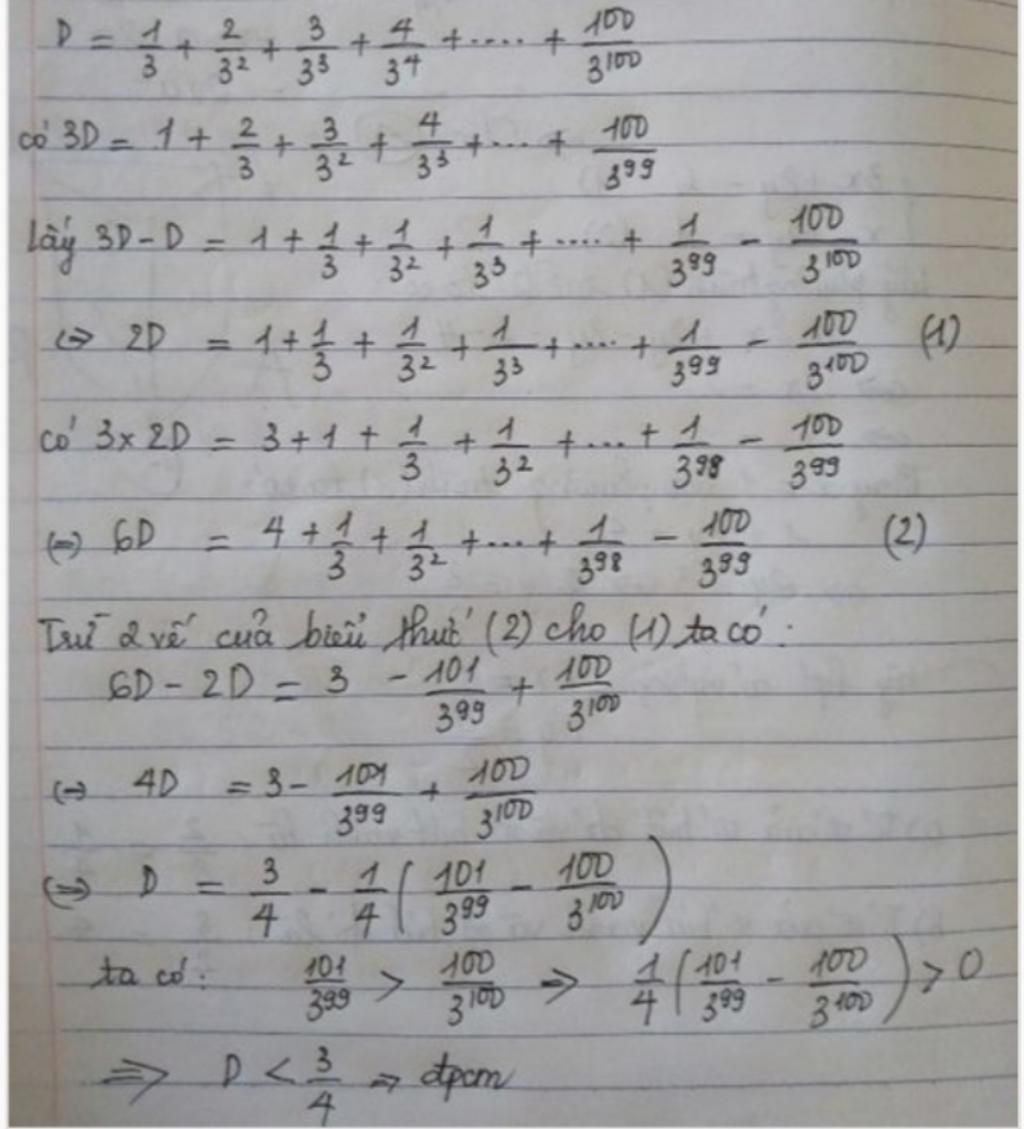 D = 1/3 + 2/3² + 3/3³ + 4/3⁴ + .... + 100/3¹⁰⁰
có 3D = 1 + 2/3 + 3/3² + 4/3³ + ... + 100/3⁹⁹
Lấy 3D - D = 1 + 1/3 + 1/3² + 1/3³ + .... + 1/3⁹⁹ - 100/3¹⁰⁰
⇔ 2D = 1 + 1/3 + 1/3² + 1/3³ + .... + 1/3⁹⁹ - 100/3¹⁰⁰ (1)
có 3 x 2D = 3 + 1 + 1/3 + 1/3² + ... + 1/3⁹⁸ - 100/3⁹⁹
⇔ 6D = 4 + 1/3 + 1/3² + ... + 1/3⁹⁸ - 100/3⁹⁹ (2)
Trừ 2 vế của biểu thức (2) cho (1) ta có :
6D - 2D = 3 - 101/3⁹⁹ + 100/3¹⁰⁰
⇔ 4D = 3 - 101/3⁹⁹ + 100/3¹⁰⁰
⇔ D = 3/4 - 1/4 ( 101/3⁹⁹ - 100/3¹⁰⁰ )
ta có : 101/3⁹⁹ > 100/3¹⁰⁰ ⇒ 1/4 ( 101/3⁹⁹ - 100/3¹⁰⁰ ) > 0
⇒ D < 3/4 ⇒ đpcm